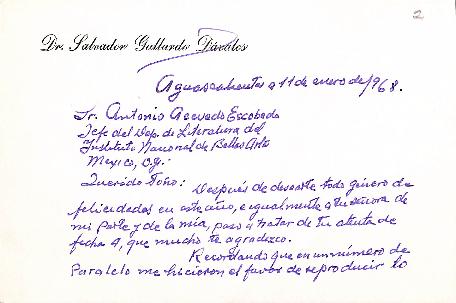 2
Dr. Salvador Gallardo Dávalos
Aguascalientes a 11 de enero de 1968.
Sr. Antonio Acevedo Escobedo
Jefe del Dep. de Literatura del
Instituto Nacional de Bellas Artes
Mexico,
Querido Toño: Después de desearte todo género de
felicidades en este año, e igualmente a tu señora de
mi parte y de la mía, paso a tratar de tu atenta de
fecha 4, que mucho te agradezco.
Recordando que en un número de
Paralelo me hicieron el favor de reproducir lo